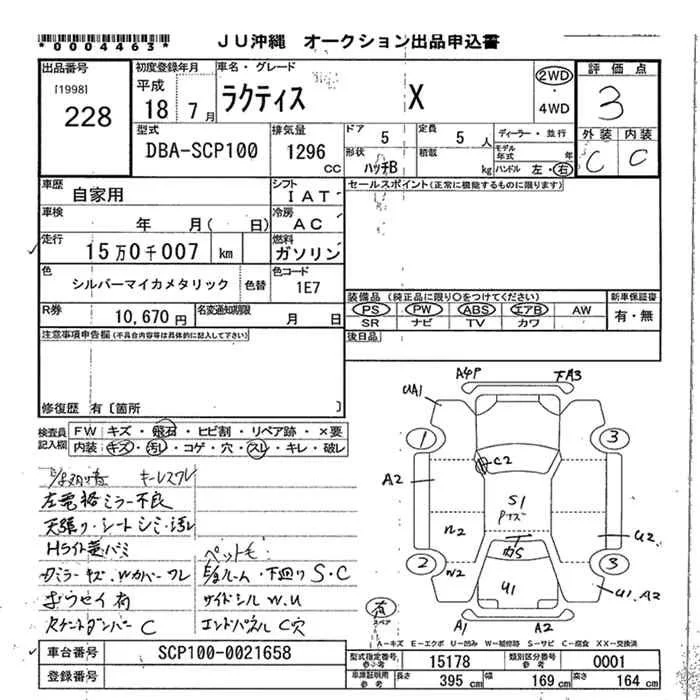 *0004463*
JU沖縄 オークション出品申込書
出品番号 初度登録年月 車名・グレード 評価点
[1998] 228 平成 18年 7月 ラクティス X 2WD・4WD 3
型式 排気量 ドア 5 定員 5人 ディーラー・並行 外装 内装
DBA-SCP100 1296 CC 形状 ハッチB 積載 kg モデル年式 年 ハンドル 左・右 C C
車歴 自家用 シフト IAT セールスポイント(正常に機能するものに限ります)
車検 年 月( 日) 冷房 AC
走行 15万0千007 km 燃料 ガソリン
色 シルバーマイカメタリック 色替 色コード 1E7
装備品 (純正品に限り○をつけてください) 新車保証書
R券 10,670円 名変通知期限 月 日 PS PW ABS エアB AW 有・無
SR ナビ TV カワ
注意事項申告欄(不具合内容等は具体的に記入して下さい) 後日品
修復歴 有〔箇所 〕
検査員記入欄 FW キズ・飛石・ヒビ割・リペア跡・×要
内装 キズ・汚レ・コゲ・穴・スレ・キレ・破レ
A4P 下A3
UA1
1 3
C2
A2
S1
U2 U2
2 3
W2
U1
U1, A2
A1 A2
スペア
キーレスフレ
左電格ミラー不良
天張り・シートシミ・汚レ
Hライト黄バミ ペット毛
ミラーキズ、Wカバーワレ ルーム・下廻りS・C
サイドシル W.U
C エンドパネルC穴
A-キズ E-エクボ U-凹み W-補修跡 S-サビ C-腐食 XX-交換済
車台番号 SCP100-0021658 型式指定番号 参考 15178 類別区分番号 参考 0001
登録番号 車庫証明用 参考 長さ 395 cm 幅 169 cm 高さ 164 cm